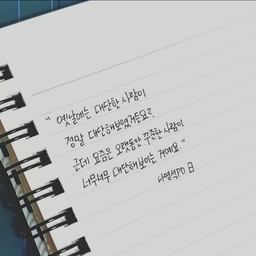 " 옛날에는 대단한 사람이
정말 대단해보였거든요?
근데 요즘은 오랫동안 꾸준한 사람이
너무너무 대단해보이는 거예요."
나영석PD 曰